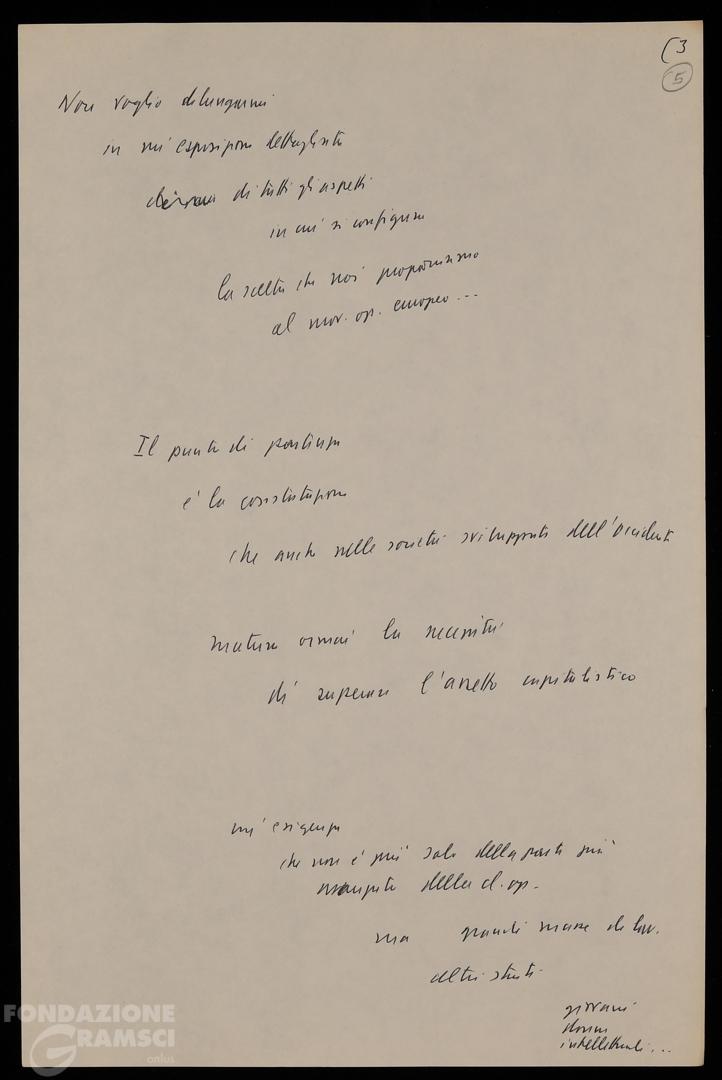 (3
5
Non voglio dilungarmi
in un'esposizione dettagliata
di tutti gli aspetti
in cui si configura
la scelta che noi proponiamo
al mov. op. europeo...
Il punto di partenza
è la constatazione
che anche nelle società sviluppate dell'Occidente
matura ormai la necessità
di superare l'assetto capitalistico
un'esigenza
che non è più solo della parte più
avanzata della cl. op.
ma grandi masse di lav.
altri strati
giovani
donne
intellettuali...
FONDAZIONE
GRAMSCI
onlus